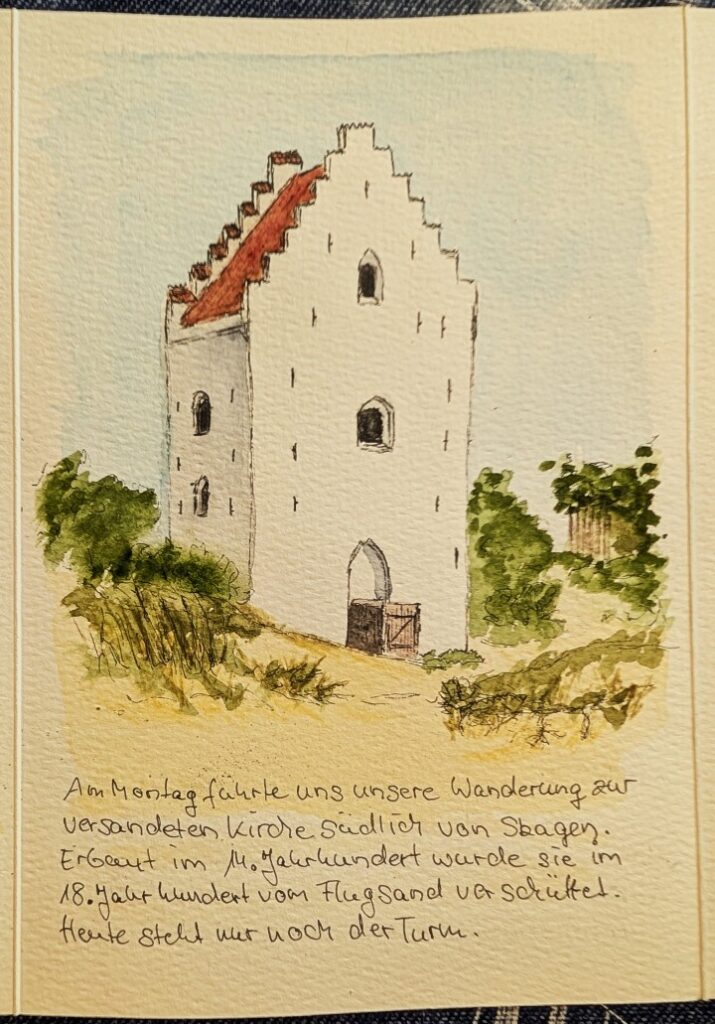 Am Montag führte uns unsere Wanderung zur
versandeten Kirche südlich von Skagen.
Erbaut im 14. Jahrhundert wurde sie im
18. Jahrhundert vom Flugsand verschüttet.
Heute steht nur noch der Turm.